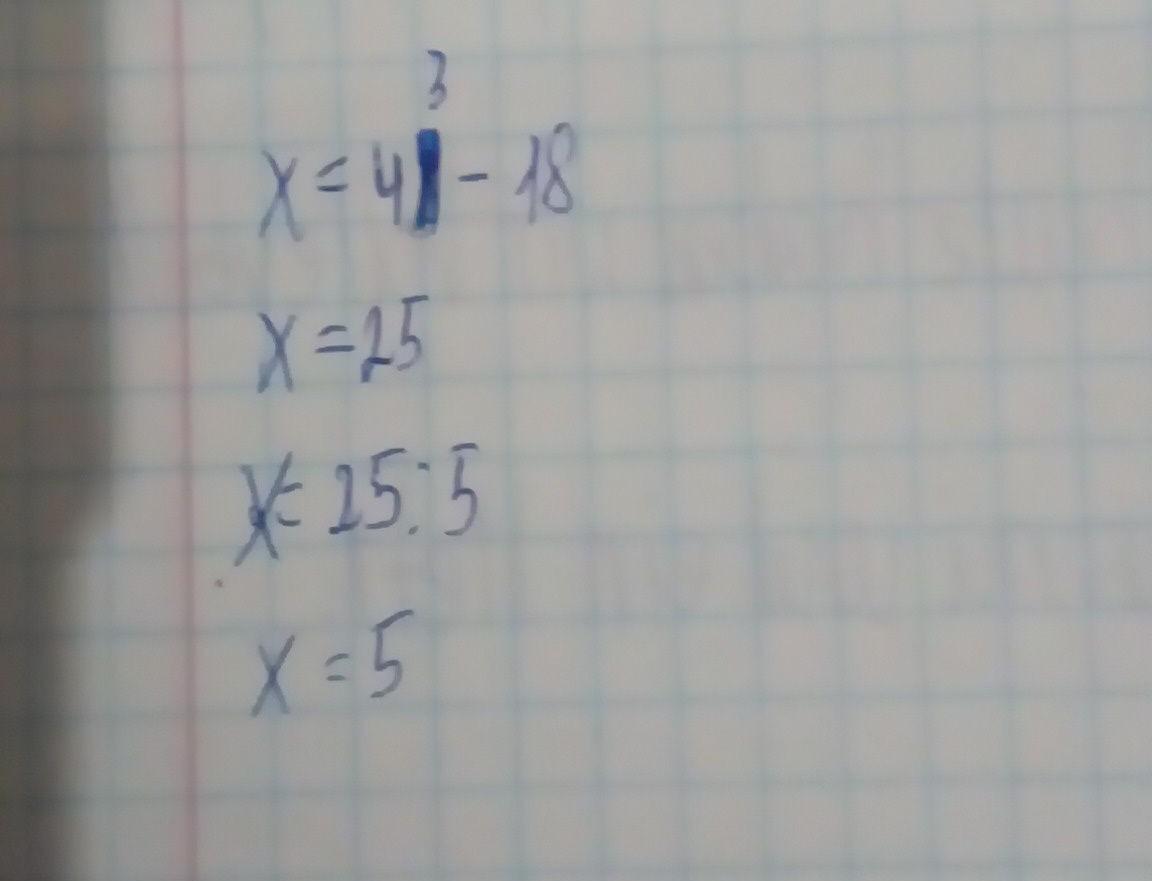 3
x = 4 - 18
x = 25
x = 25 : 5
x = 5